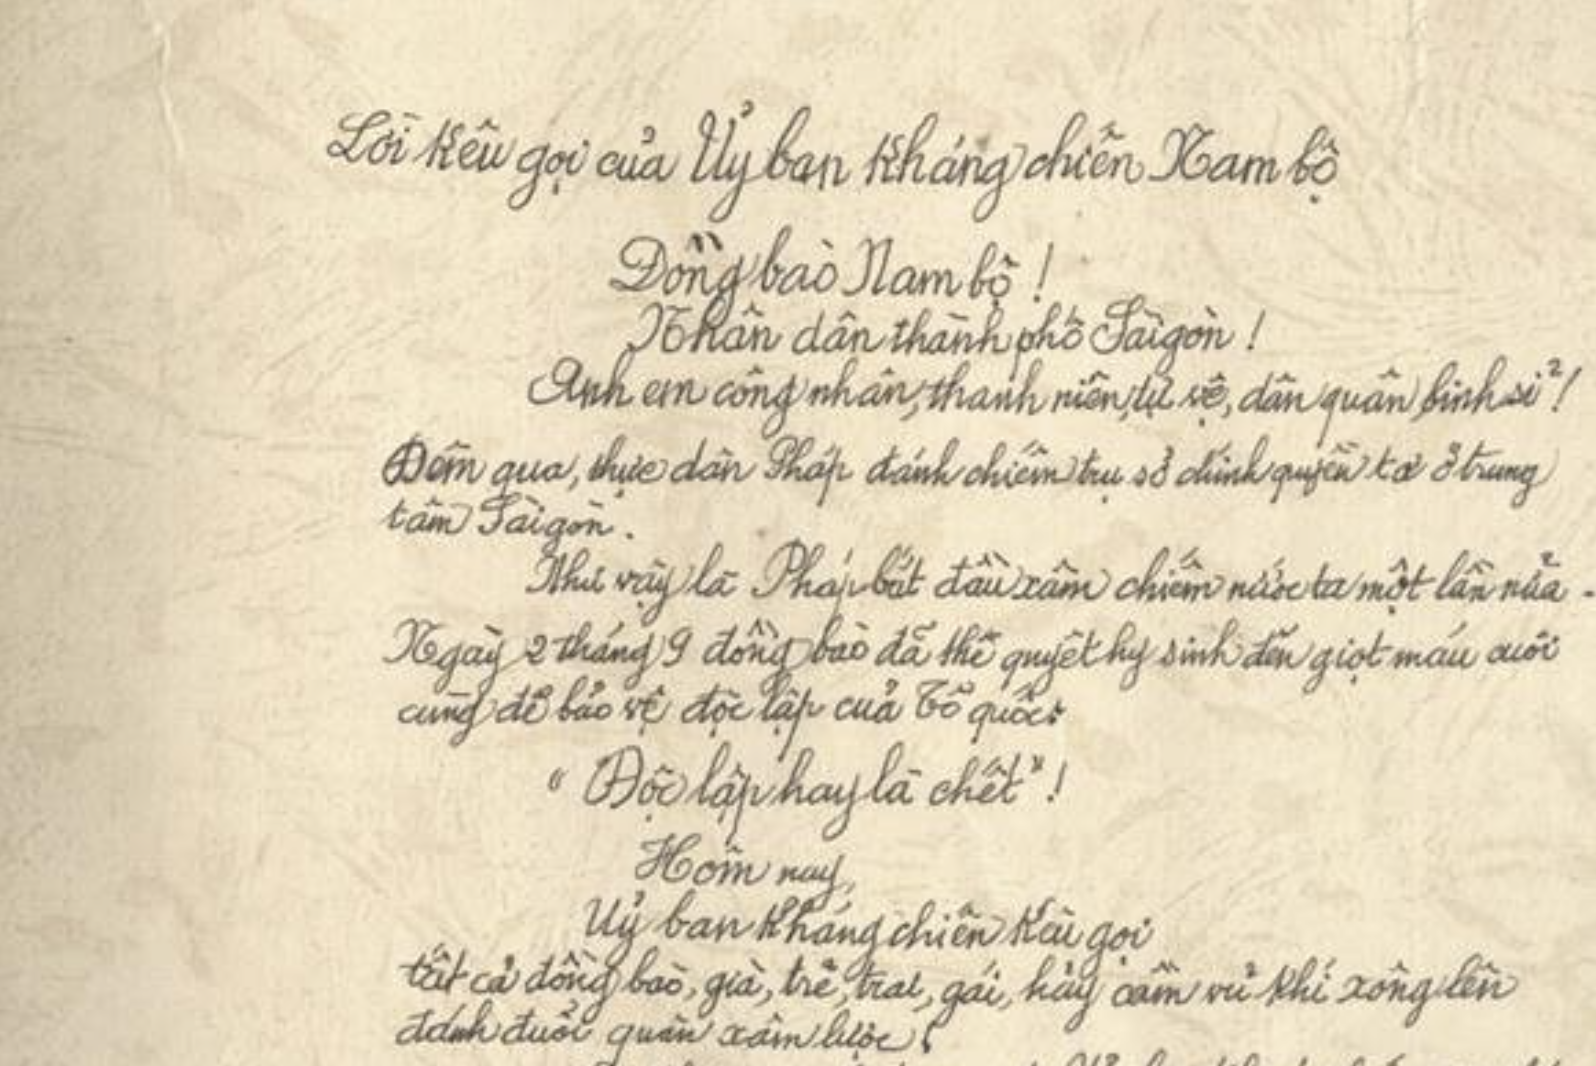 Lời kêu gọi của Ủy ban kháng chiến Nam bộ
Đồng bào Nam bộ !
Nhân dân thành phố Sàigòn !
Anh em công nhân, thanh niên, tự vệ, dân quân binh sĩ !
Đêm qua, thực dân Pháp đánh chiếm trụ sở chính quyền ta ở trung
tâm Sàigòn.
Như vậy là Pháp bắt đầu xâm chiếm nước ta một lần nữa.
Ngày 2 tháng 9 đồng bào đã thề quyết hy sinh đến giọt máu cuối
cùng để bảo vệ độc lập của Tổ quốc:
“Độc lập hay là chết” !
Hôm nay,
Uỷ ban kháng chiến kêu gọi
tất cả đồng bào, già, trẻ, trai, gái, hãy cầm vũ khí xông lên
đánh đuổi quân xâm lược.